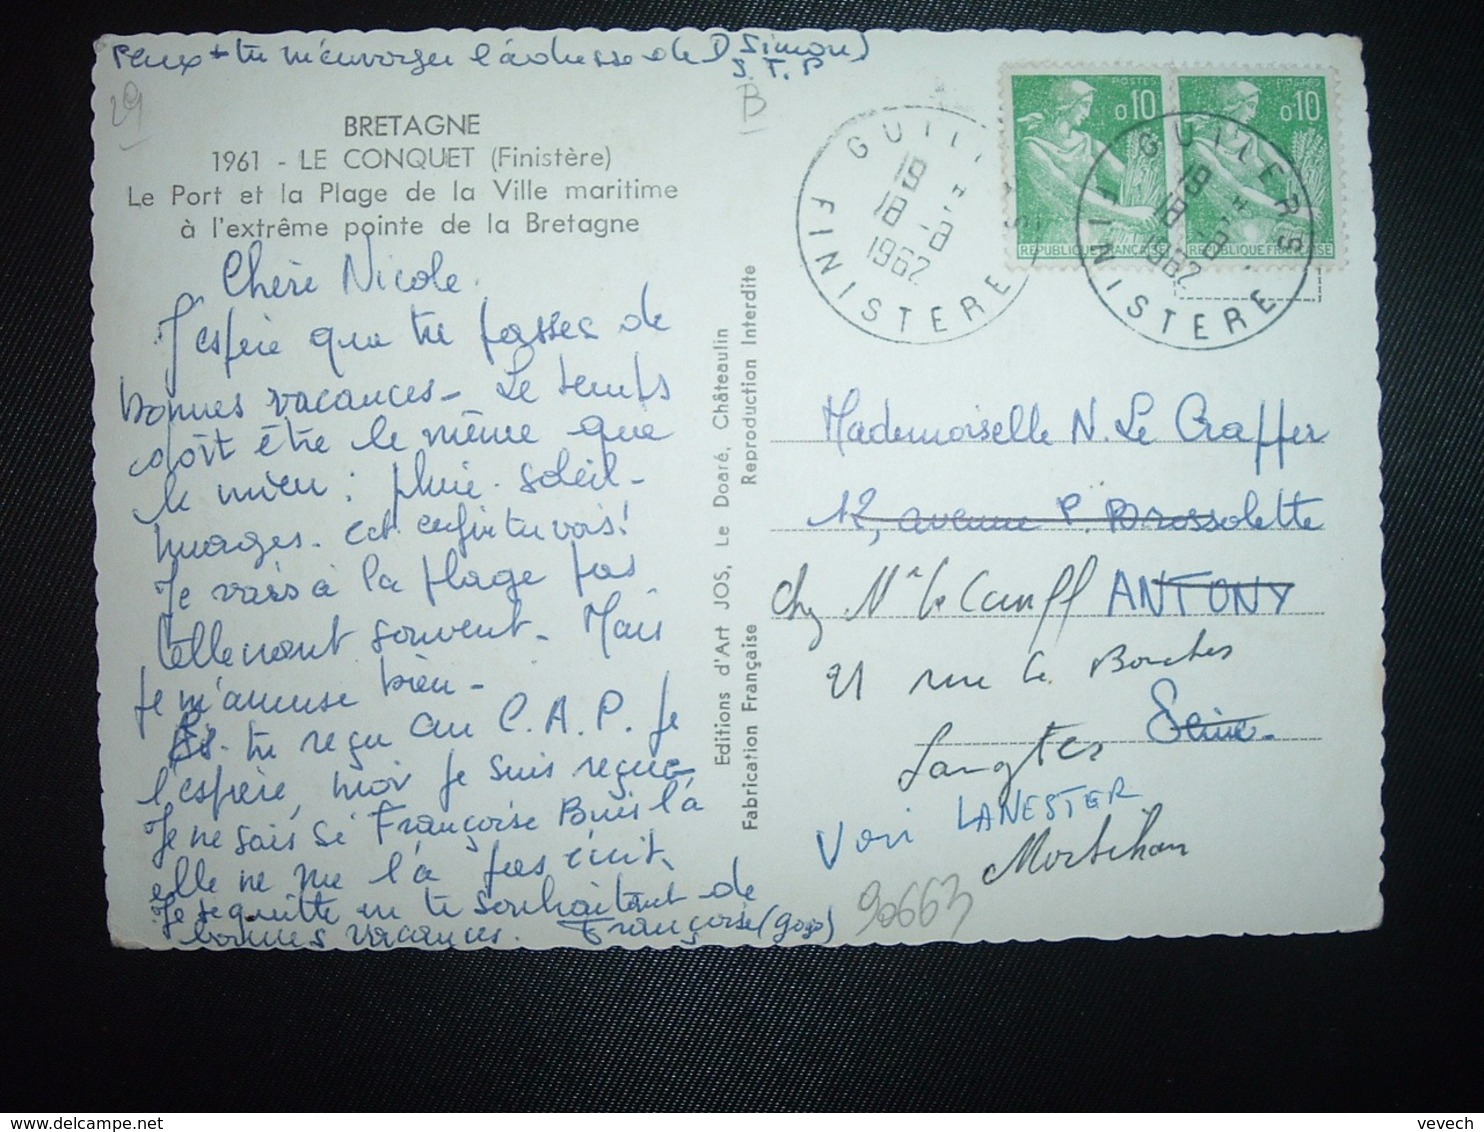 Peux-tu m'envoyer l'adresse de D Simon)
S.T.P
29
B
BRETAGNE
1961 - LE CONQUET (Finistère)
Le Port et la Plage de la Ville maritime
à l'extrême pointe de la Bretagne
Chère Nicole.
J'espère que tu passes de
bonnes vacances - Le temps
doit être le même que
le mien : pluie - soleil -
nuages - est enfin tu vois!
Je vais à la plage pas
tellement souvent - Mais
je m'amuse bien -
Es-tu reçu au C.A.P. Je
l'espère, moi je suis reçue
Je ne sais si Françoise Buis l'a
elle ne me l'a pas écrit.
Je te quitte en te souhaitant de
bonnes vacances. Françoise (gogo)
Editions d'Art JOS, Le Doaré, Châteaulin
Fabrication Française Reproduction Interdite
GUILERS
18H
18-8
1962
FINISTERE
POSTES
0,10
REPUBLIQUE FRANÇAISE
POSTES
0,10
REPUBLIQUE FRANÇAISE
GUILERS
18H
18-8
1962
FINISTERE
Mademoiselle N. Le Craffer
12, avenue P. Brossolette
chez Mr Le Canff ANTONY
21 rue Le
Seine
Voir LANESTER
Morbihan
90663
vevech